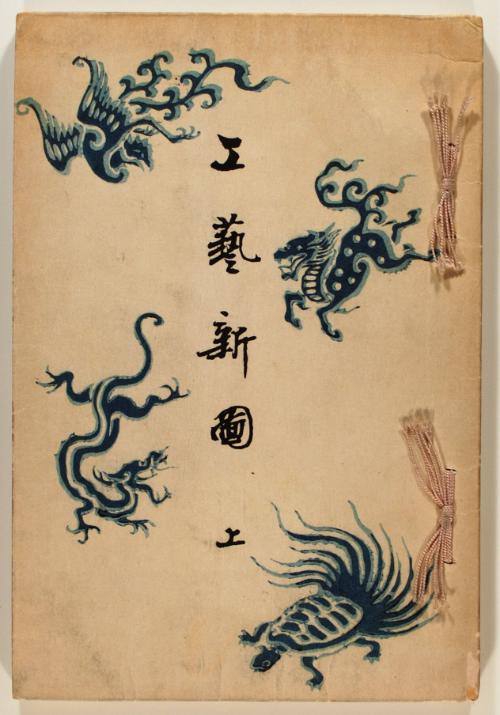 工藝新圖 上